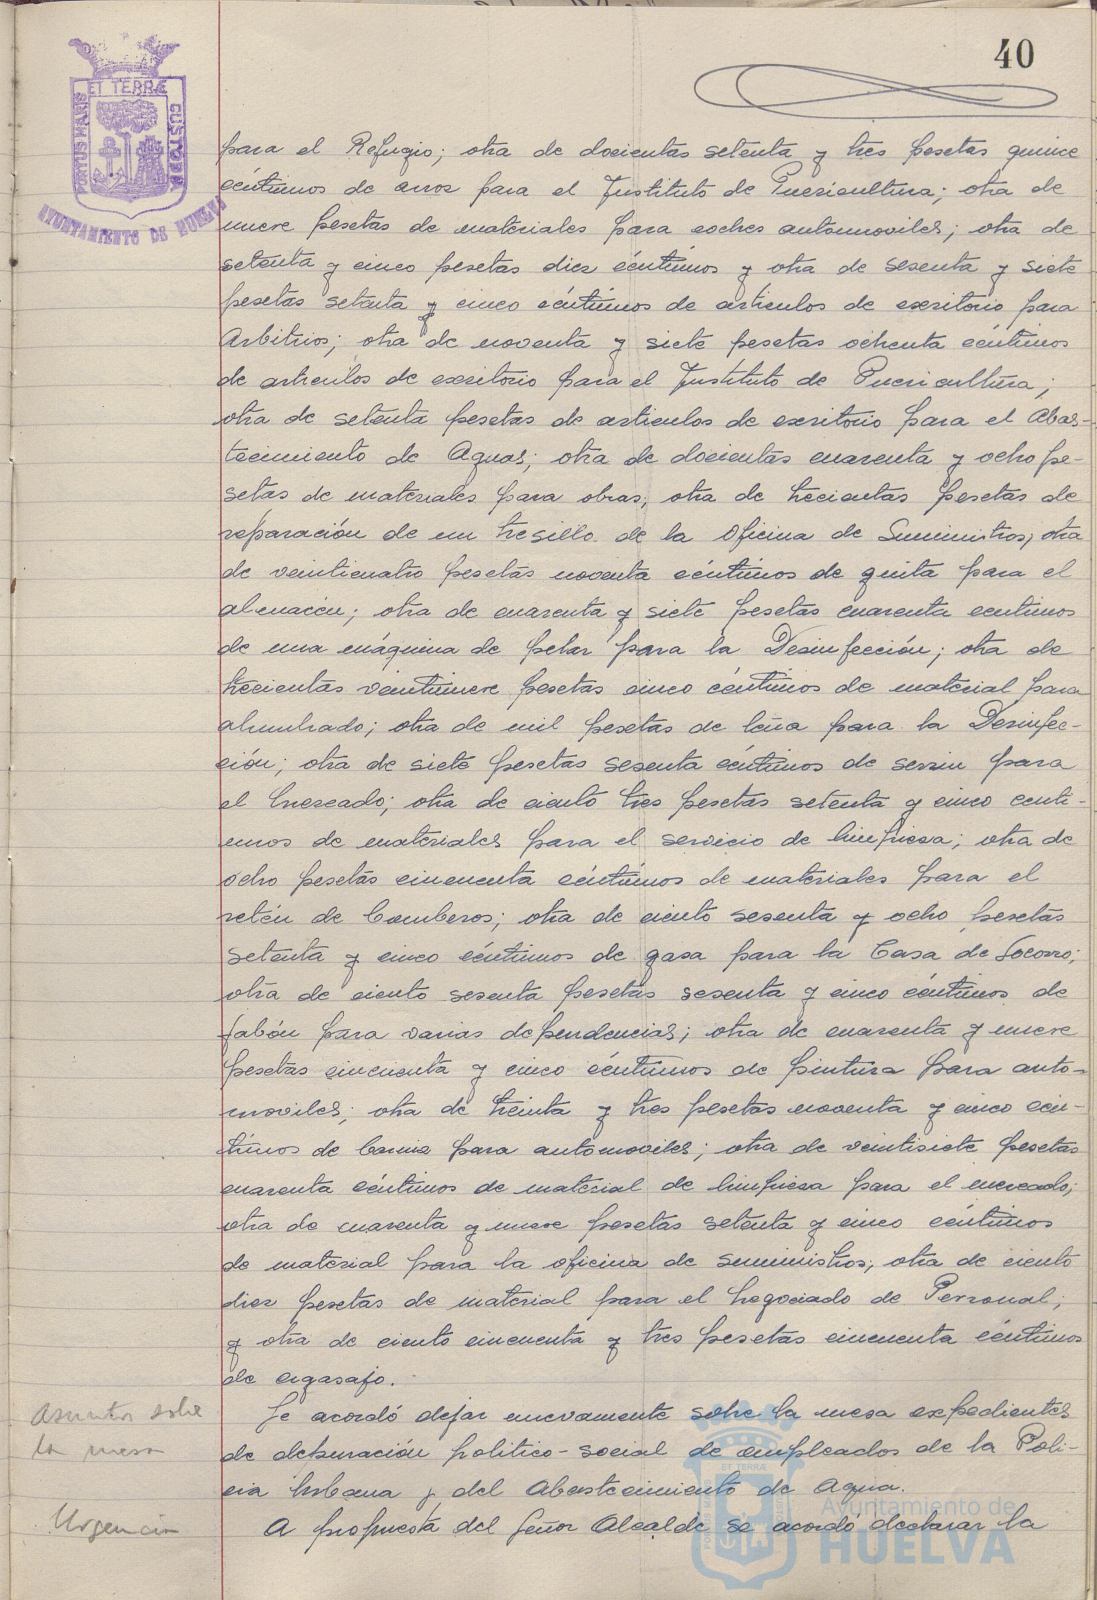 40
ET TERRÆ
PORTUS MARIS
CUSTODIA
AYUNTAMIENTO DE HUELVA
para el Refugio; otra de docientas setenta y tres pesetas quince
céntimos de arroz para el Instituto de Puericultura; otra de
nueve pesetas de materiales para coches automoviles; otra de
setenta y cinco pesetas diez céntimos y otra de sesenta y siete
pesetas setenta y cinco céntimos de articulos de escritorio para
Arbitrios; otra de noventa y siete pesetas ochenta céntimos
de articulos de escritorio para el Instituto de Puericultura;
otra de setenta pesetas de articulos de escritorio para el Abas-
tecimiento de Aguas; otra de docientas cuarenta y ocho pe-
setas de materiales para obras; otra de trecientas pesetas de
reparación de un tresillo de la Oficina de Suministros; otra
de veinticuatro pesetas noventa céntimos de guita para el
almacén; otra de cuarenta y siete pesetas cuarenta centimos
de una máquina de pelar para la Desinfección; otra de
trecientas veintinueve pesetas cinco céntimos de material para
alumbrado; otra de mil pesetas de leña para la Desinfec-
ción; otra de siete pesetas sesenta céntimos de serrin para
el mercado; otra de ciento tres pesetas setenta y cinco centi-
mos de materiales para el servicio de limpieza; otra de
ocho pesetas cincuenta céntimos de materiales para el
retén de bomberos; otra de ciento sesenta y ocho pesetas
setenta y cinco céntimos de gasa para la Casa de Socorro;
otra de ciento sesenta pesetas sesenta y cinco céntimos de
jabón para varias dependencias; otra de cuarenta y nueve
pesetas cincuenta y cinco céntimos de pintura para auto-
moviles; otra de treinta y tres pesetas noventa y cinco cén-
timos de barniz para automoviles; otra de veintisiete pesetas
cuarenta céntimos de material de limpieza para el mercado;
otra de cuarenta y nueve pesetas setenta y cinco céntimos
de material para la oficina de suministros; otra de ciento
diez pesetas de material para el Negociado de Personal;
y otra de ciento cincuenta y tres pesetas cincuenta céntimos
de agasajo.
Asuntos sobre
la mesa
Se acordó dejar nuevamente sobre la mesa expedientes
de depuración politico-social de empleados de la Poli-
cia Urbana y del Abastecimiento de Agua.
Urgencia
A propuesta del Señor Alcalde se acordó declarar la
Ayuntamiento de
HUELVA